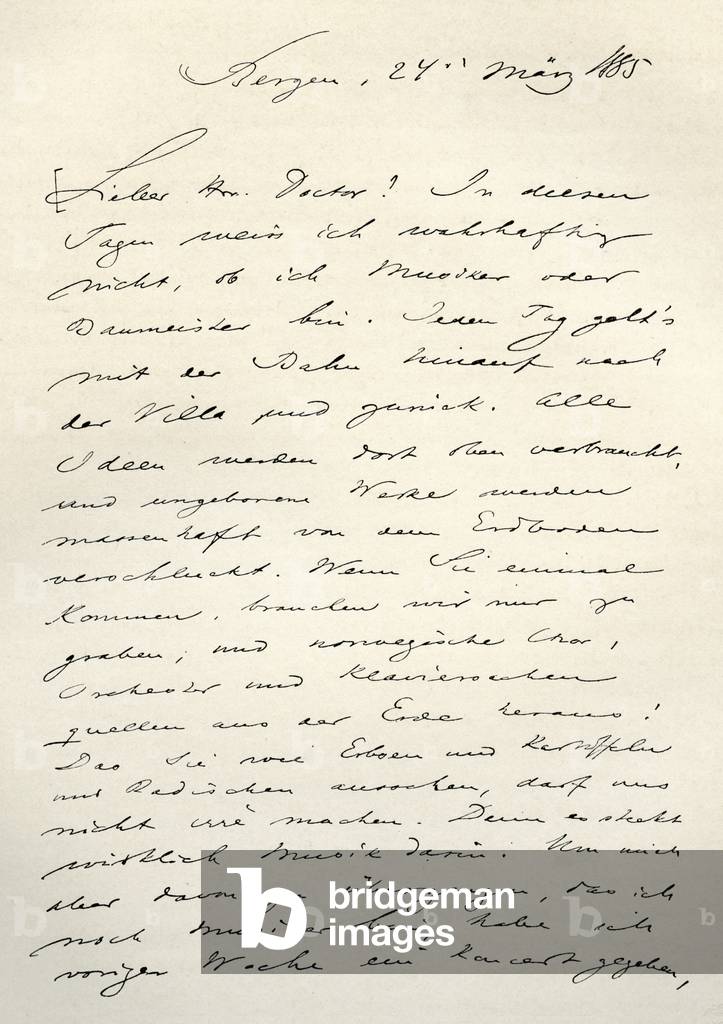 Bergen, 24" März 1885
[Lieber Hrr. Doctor! In diesen
Tagen weiss ich wahrhaftig
nicht, ob ich Musiker oder
Baumeister bin. Jeden Tag geht's
mit der Bahn hinauf nach
der Villa und zurück. Alle
Ideen werden dort oben verbraucht,
und ungeborene Werke werden
massenhaft von dem Erdboden
verschluckt. Wenn Sie einmal
kommen, brauchen wir nur zu
graben, und norwegische Chor,
Orchester und Klaviersachen
quellen aus der Erde heraus!
Das Sie wie Erbsen und Kartoffeln
und Radischen aussehen, darf uns
nicht irre machen. Denn es steckt
wirklich Musik darin. Um mich
aber davon zu überzeugen, das ich
noch Musiker bin, habe ich
voriger Woche ein Koncert gegeben,
b bridgeman
images